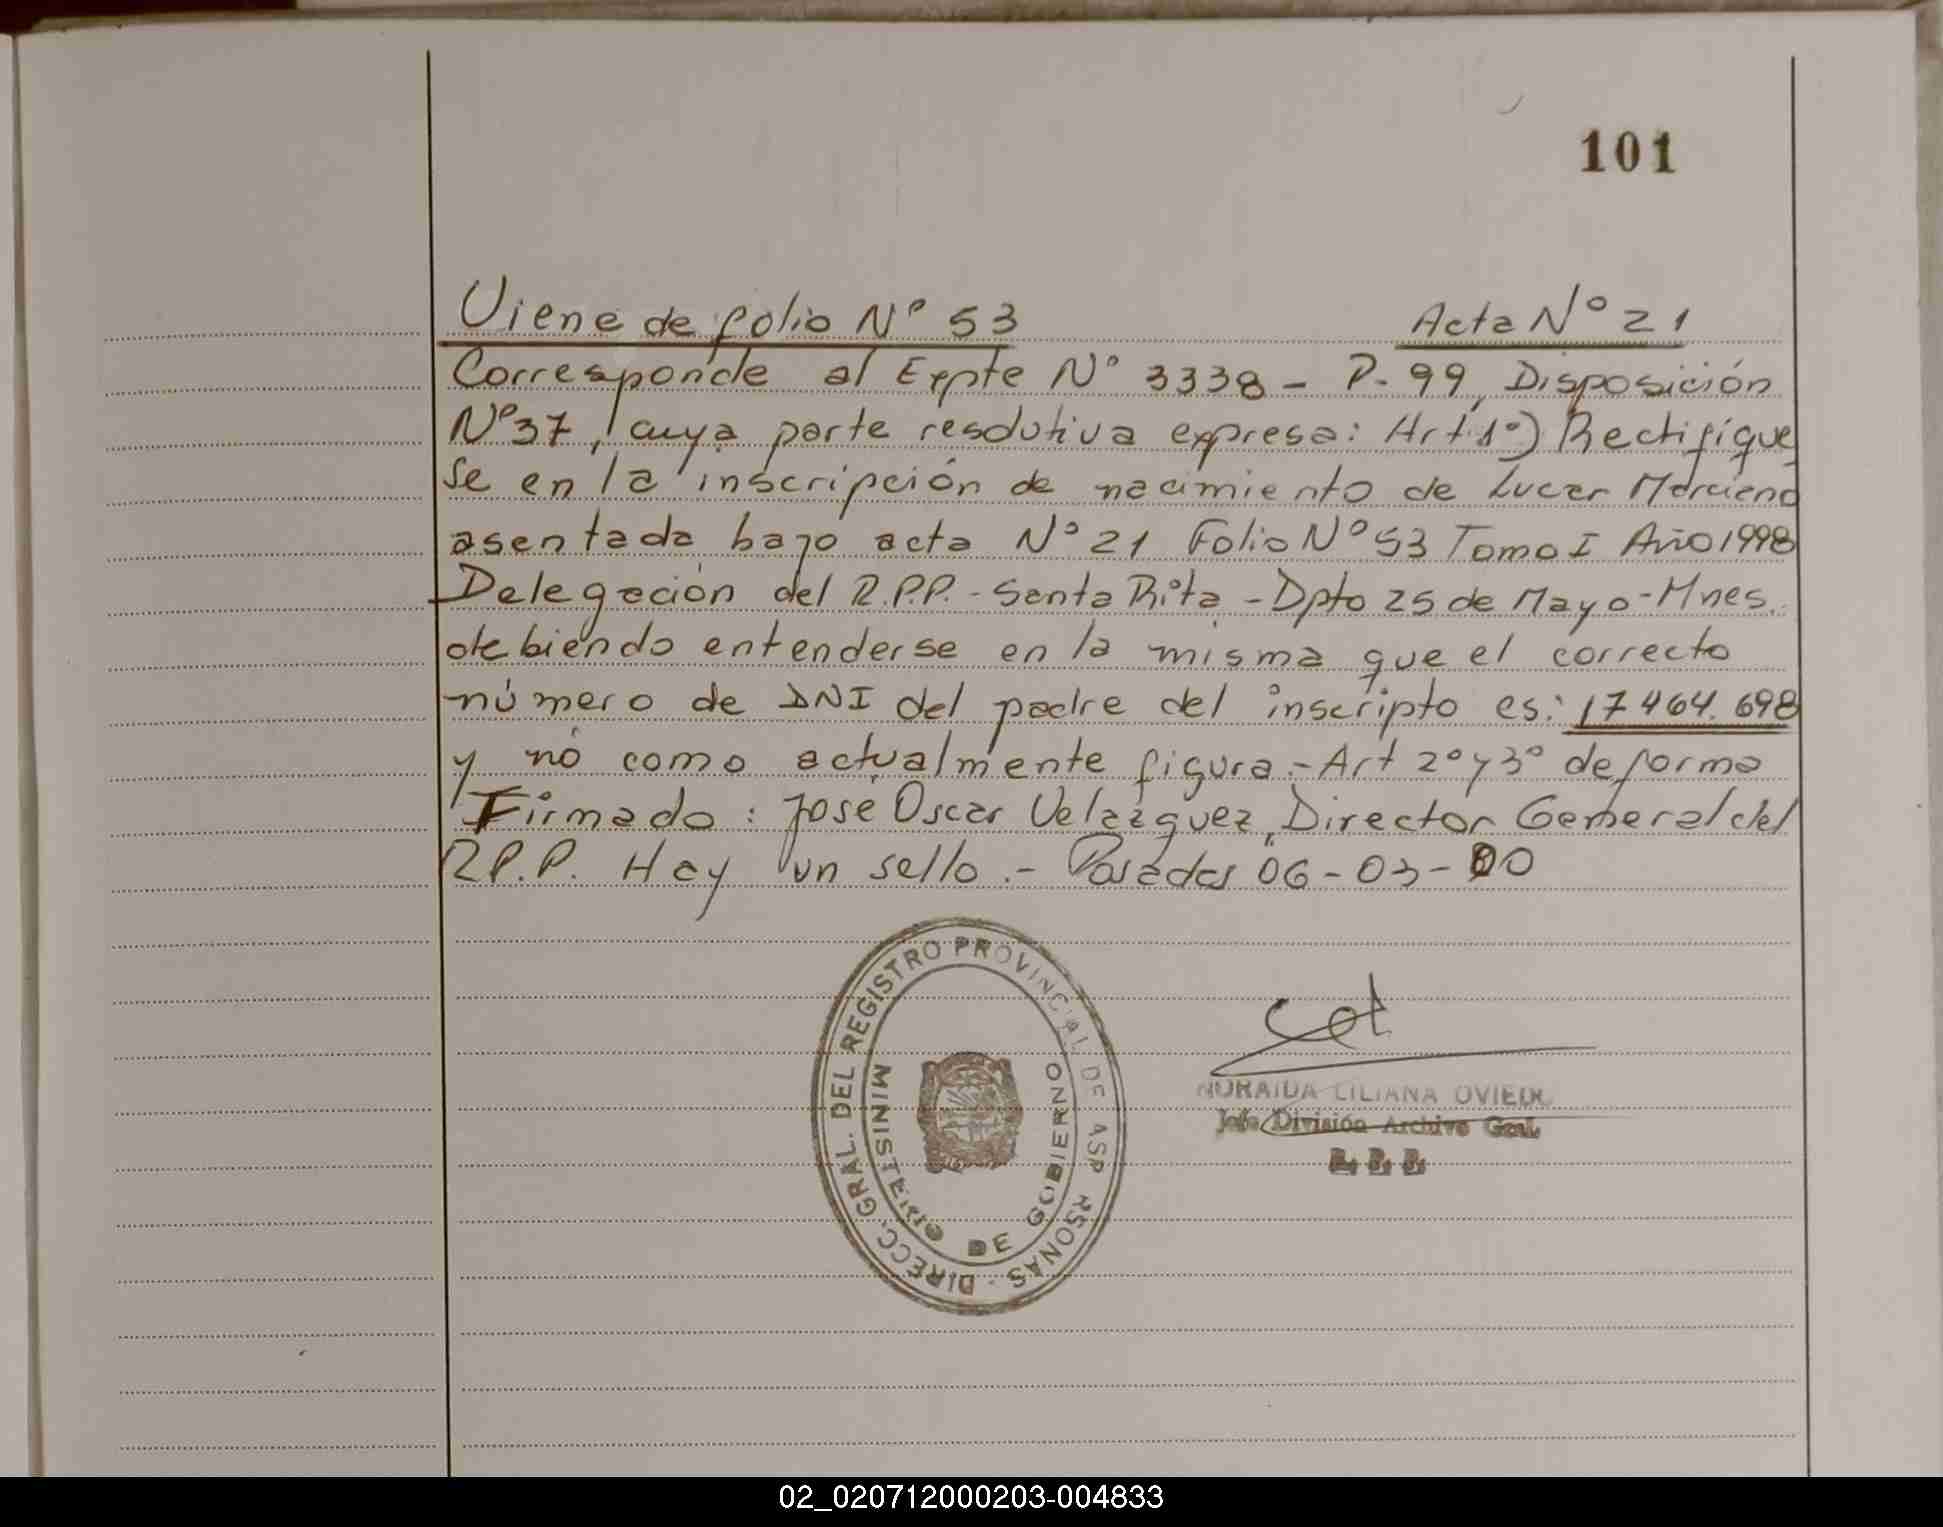 101
Viene de folio Nº 53 Acta Nº 21
Corresponde al Expte Nº 3338 - P. 99, Disposición
Nº 37, cuya parte resolutiva expresa: Art. 1º) Rectifíque
se en la inscripción de nacimiento de Lucas Marciano
asentada bajo acta Nº 21 Folio Nº 53 Tomo I Año 1998
Delegación del R.P.P. - Santa Rita - Dpto 25 de Mayo - Mnes.
debiendo entenderse en la misma que el correcto
número de DNI del padre del inscripto es: 17 464.698
y no como actualmente figura.- Art 2º y 3º de forma
Firmado: José Oscar Velazquez, Director General del
R.P.P. Hay un sello.- Posadas 06-03-00
DIRECC. GRAL. DEL REGISTRO PROVINCIAL DE AS PERSONAS
MINISTERIO DE GOBIERNO
NORAIDA LILIANA OVIEDO
Jefe División Archivo Gral.
R. P. P.
02_020712000203-004833